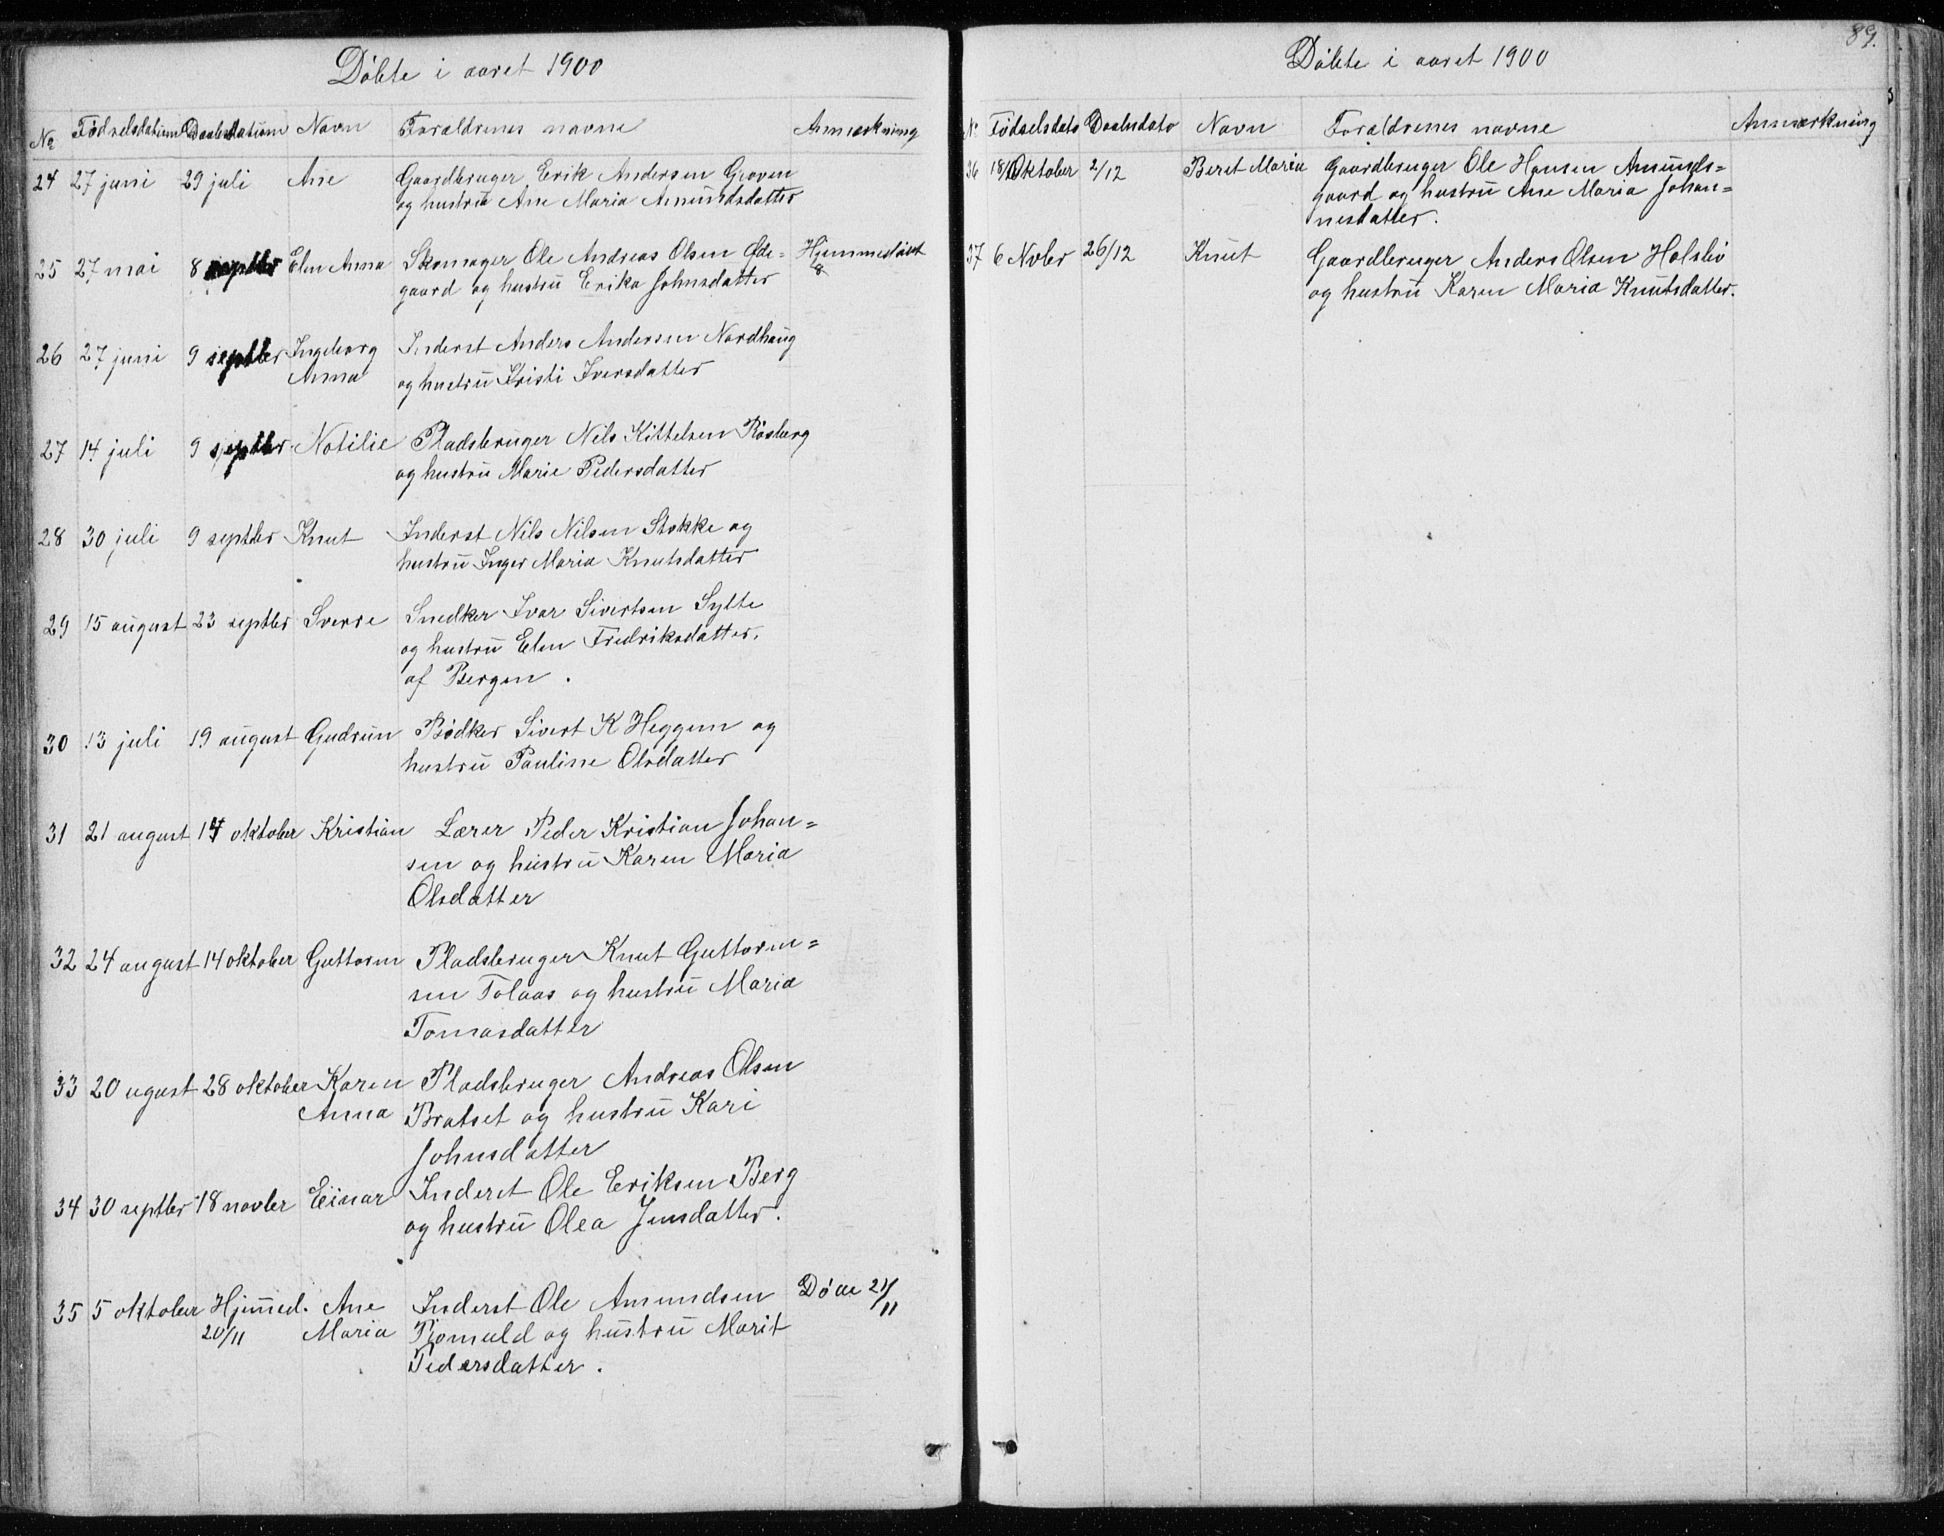 Døbte i aaret 1900
No Fødselsdatum Daabsdatum Navn Forældrenes navne Anmærkning
24 27 juni 29 juli Ane Gaardbruger Erik Andersen Groven
og hustru Ane Maria Amundsdatter
25 27 mai 8 septbr Elen Anna Skomager Ole Andreas Olsen Øde= Hjemmedøbt
gaard og hustru Erika Johnsdatter
26 27 juni 9 septber Ingeborg Inderst Anders Andersen Nordhaug
Anna og hustru Kristi Iversdatter
27 14 juli 9 septbr Notilie Pladsbruger Nils Kittelsen Røsberg
og hustru Marie Pedersdatter
28 30 juli 9 septbr Knut Inderst Nils Nilsen Stokke og
hustru Inger Maria Knutsdatter
29 15 august 23 septbr Sverre Snedker Ivar Sivertsen Sylte
og hustru Elen Fredriksdatter.
af Bergen.
30 13 juli 19 august Gudrun Bødker Sivert K Heggem og
hustru Pauline Olsdatter
31 21 august 14 oktober Kristian Lærer Peder Kristian Johan=
sen og hustru Karen Maria
Olsdatter
32 24 august 14 oktober Guttorm Pladsbruger Knut Guttorm=
sen Tolaas og hustru Maria
Tomasdatter
33 20 ugust 28 oktober Karen Pladsbruger Andreas Olsen
Anna Bratset og hustru Kari
Johnsdatter
34 30 septbr 18 novber Einar Inderst Ole Eriksen Berg
og hustru Olea Jensdatter.
35 5 oktober Hjemmed. Ane Inderst Ole Amundsen Døde 24/11
20/11 Maria og hustru Marit
Pedersdatter.
89.
Døbte i aaret 1900
No Fødselsdato Daabsdato Navn Forældrenes navne Anmærkning
36 18 Oktober 2/12 Beret Maria Gaardbruger Ole Hansen Amunds=
gaard og hustru Ane Maria Johan=
nesdatter.
37 6 Novbr 26/12 Knut Gaardbruger Anders Olsen Halsbø
og hustru Karen Maria Knutsdatter.